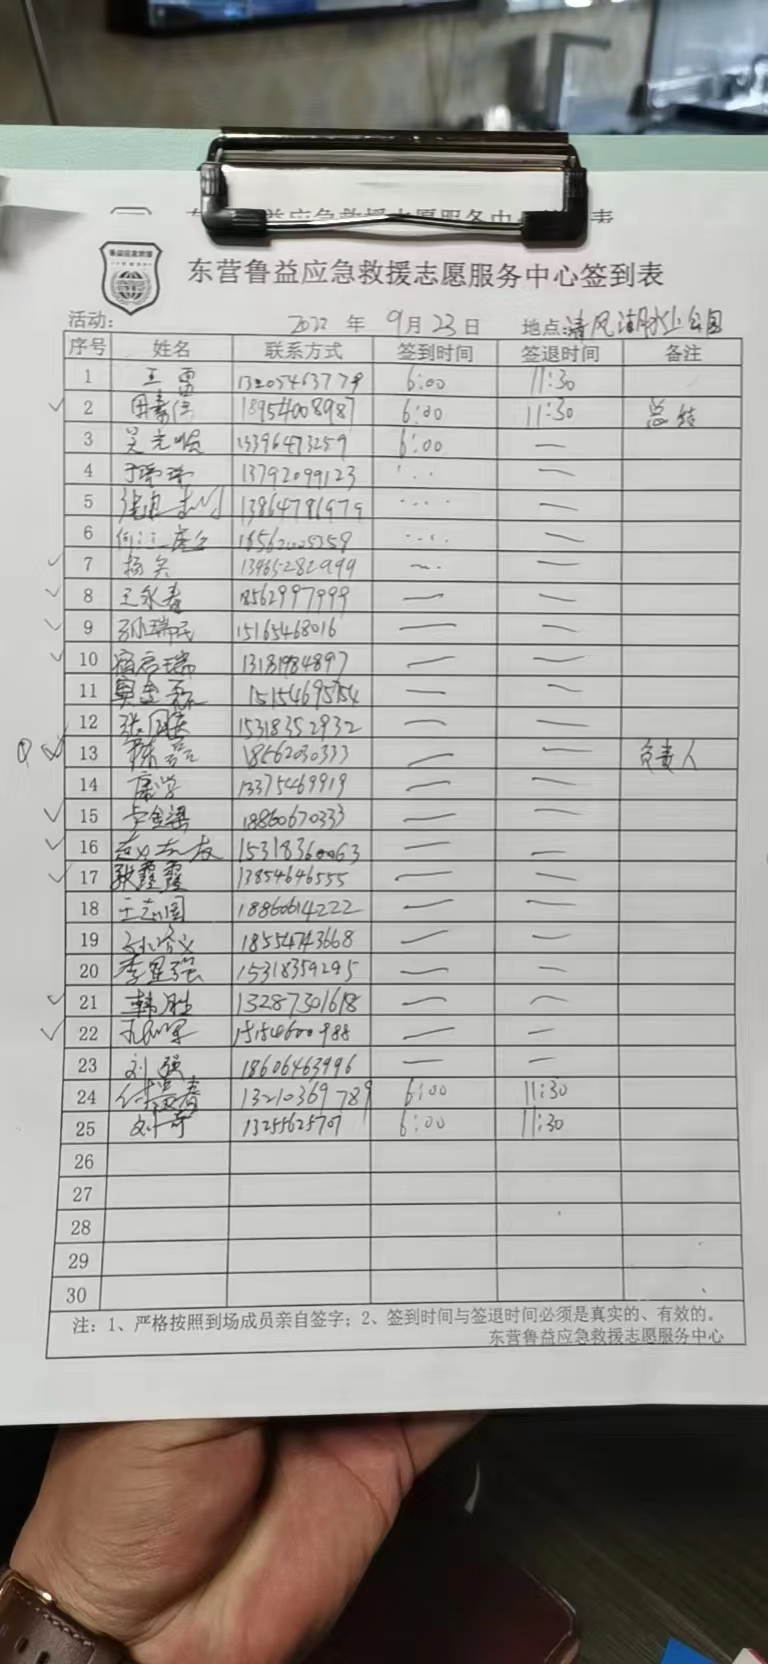 东营鲁益应急救援志愿服务中心签到表
活动: 2022 年 9月23日 地点:清风湖冰上公园
序号 姓名 联系方式 签到时间 签退时间 备注
1 王勇 6:00 11:30
2 18954008987 6:00 11:30 总结
3 吴光顺 15396473259 6:00 —
4 于瑞瑞 13792099123 —
5 13864786979 —
6 —
7 杨矣 13465282999 —
8 王永春 18562997999 — —
9 孙瑞民 15165468016 — —
10 宿启瑞 13181984897 — —
11 — —
12 张同庆 15318352932 — —
13 18562030333 — — 负责人
14 康学 13375469919 — —
15 卢金梁 18860670333 — —
16 15318360063 — —
17 张鑫鑫 13854646555 — —
18 王志国 18860614222 — —
19 18554743668 — —
20 李显强 15318359295 — —
21 韩胜 13287301618 — —
22 15154600988 — —
23 刘强 18606463996 — —
24 付爱春 13210369789 6:00 11:30
25 刘奇 13255625707 6:00 11:30
26
27
28
29
30
注：1、严格按照到场成员亲自签字；2、签到时间与签退时间必须是真实的、有效的。
东营鲁益应急救援志愿服务中心